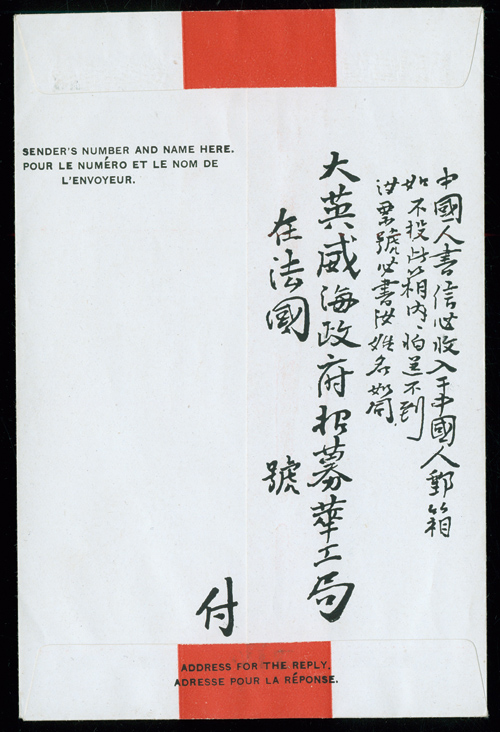 SENDER'S NUMBER AND NAME HERE.
POUR LE NUMÉRO ET LE NOM DE
L'ENVOYEUR.
中國人書信必收入于中國人郵箱
如不投此箱内、怕送不到
汝票號必書汝姓名如
大英威海政府招募華工局
在法國 號
付
ADDRESS FOR THE REPLY.
ADRESSE POUR LA RÉPONSE.